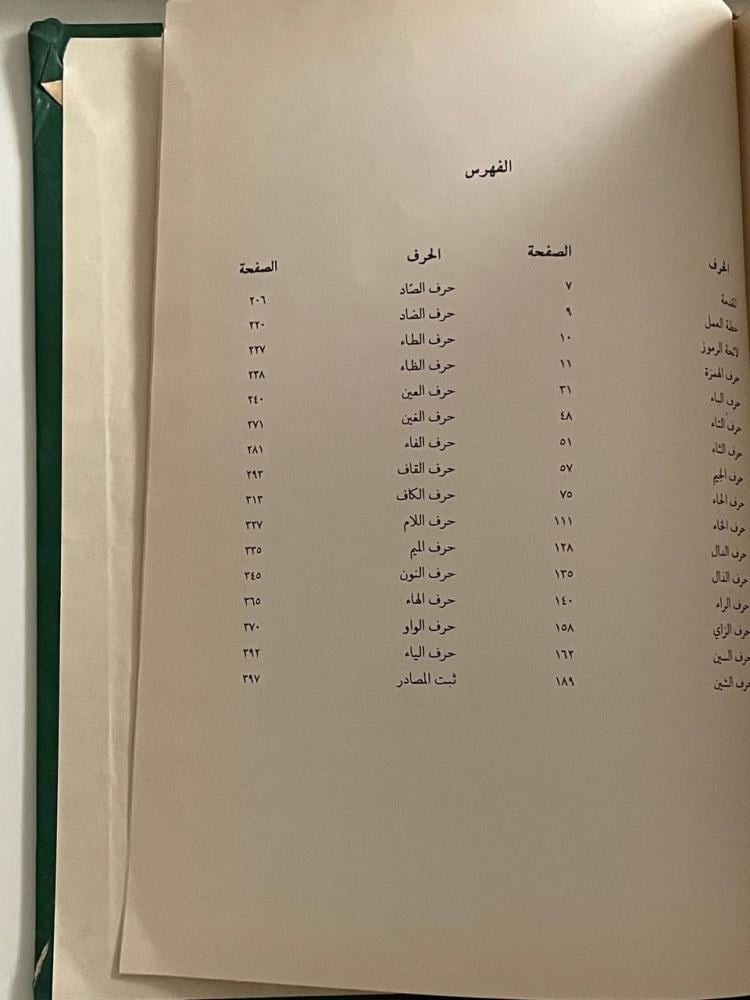 الفهرس
الحرف الصفحة الحرف الصفحة
المقدمة ٧ حرف الصّاد ٢٠٦
خطة العمل ٩ حرف الضاد ٢٢٠
لائحة الرموز ١٠ حرف الطاء ٢٢٧
حرف الهمزة ١١ حرف الظاء ٢٣٨
حرف الباء ٣١ حرف العين ٢٤٠
حرف التاء ٤٨ حرف الغين ٢٧١
حرف الثاء ٥١ حرف الفاء ٢٨١
حرف الجيم ٥٧ حرف القاف ٢٩٣
حرف الحاء ٧٥ حرف الكاف ٣١٣
حرف الخاء ١١١ حرف اللام ٣٢٧
حرف الدال ١٢٨ حرف الميم ٣٣٥
حرف الذال ١٣٥ حرف النون ٣٤٥
حرف الراء ١٤٠ حرف الهاء ٣٦٥
حرف الزاي ١٥٨ حرف الواو ٣٧٠
حرف السين ١٦٢ حرف الياء ٣٩٢
حرف الشين ١٨٩ ثبت المصادر ٣٩٧